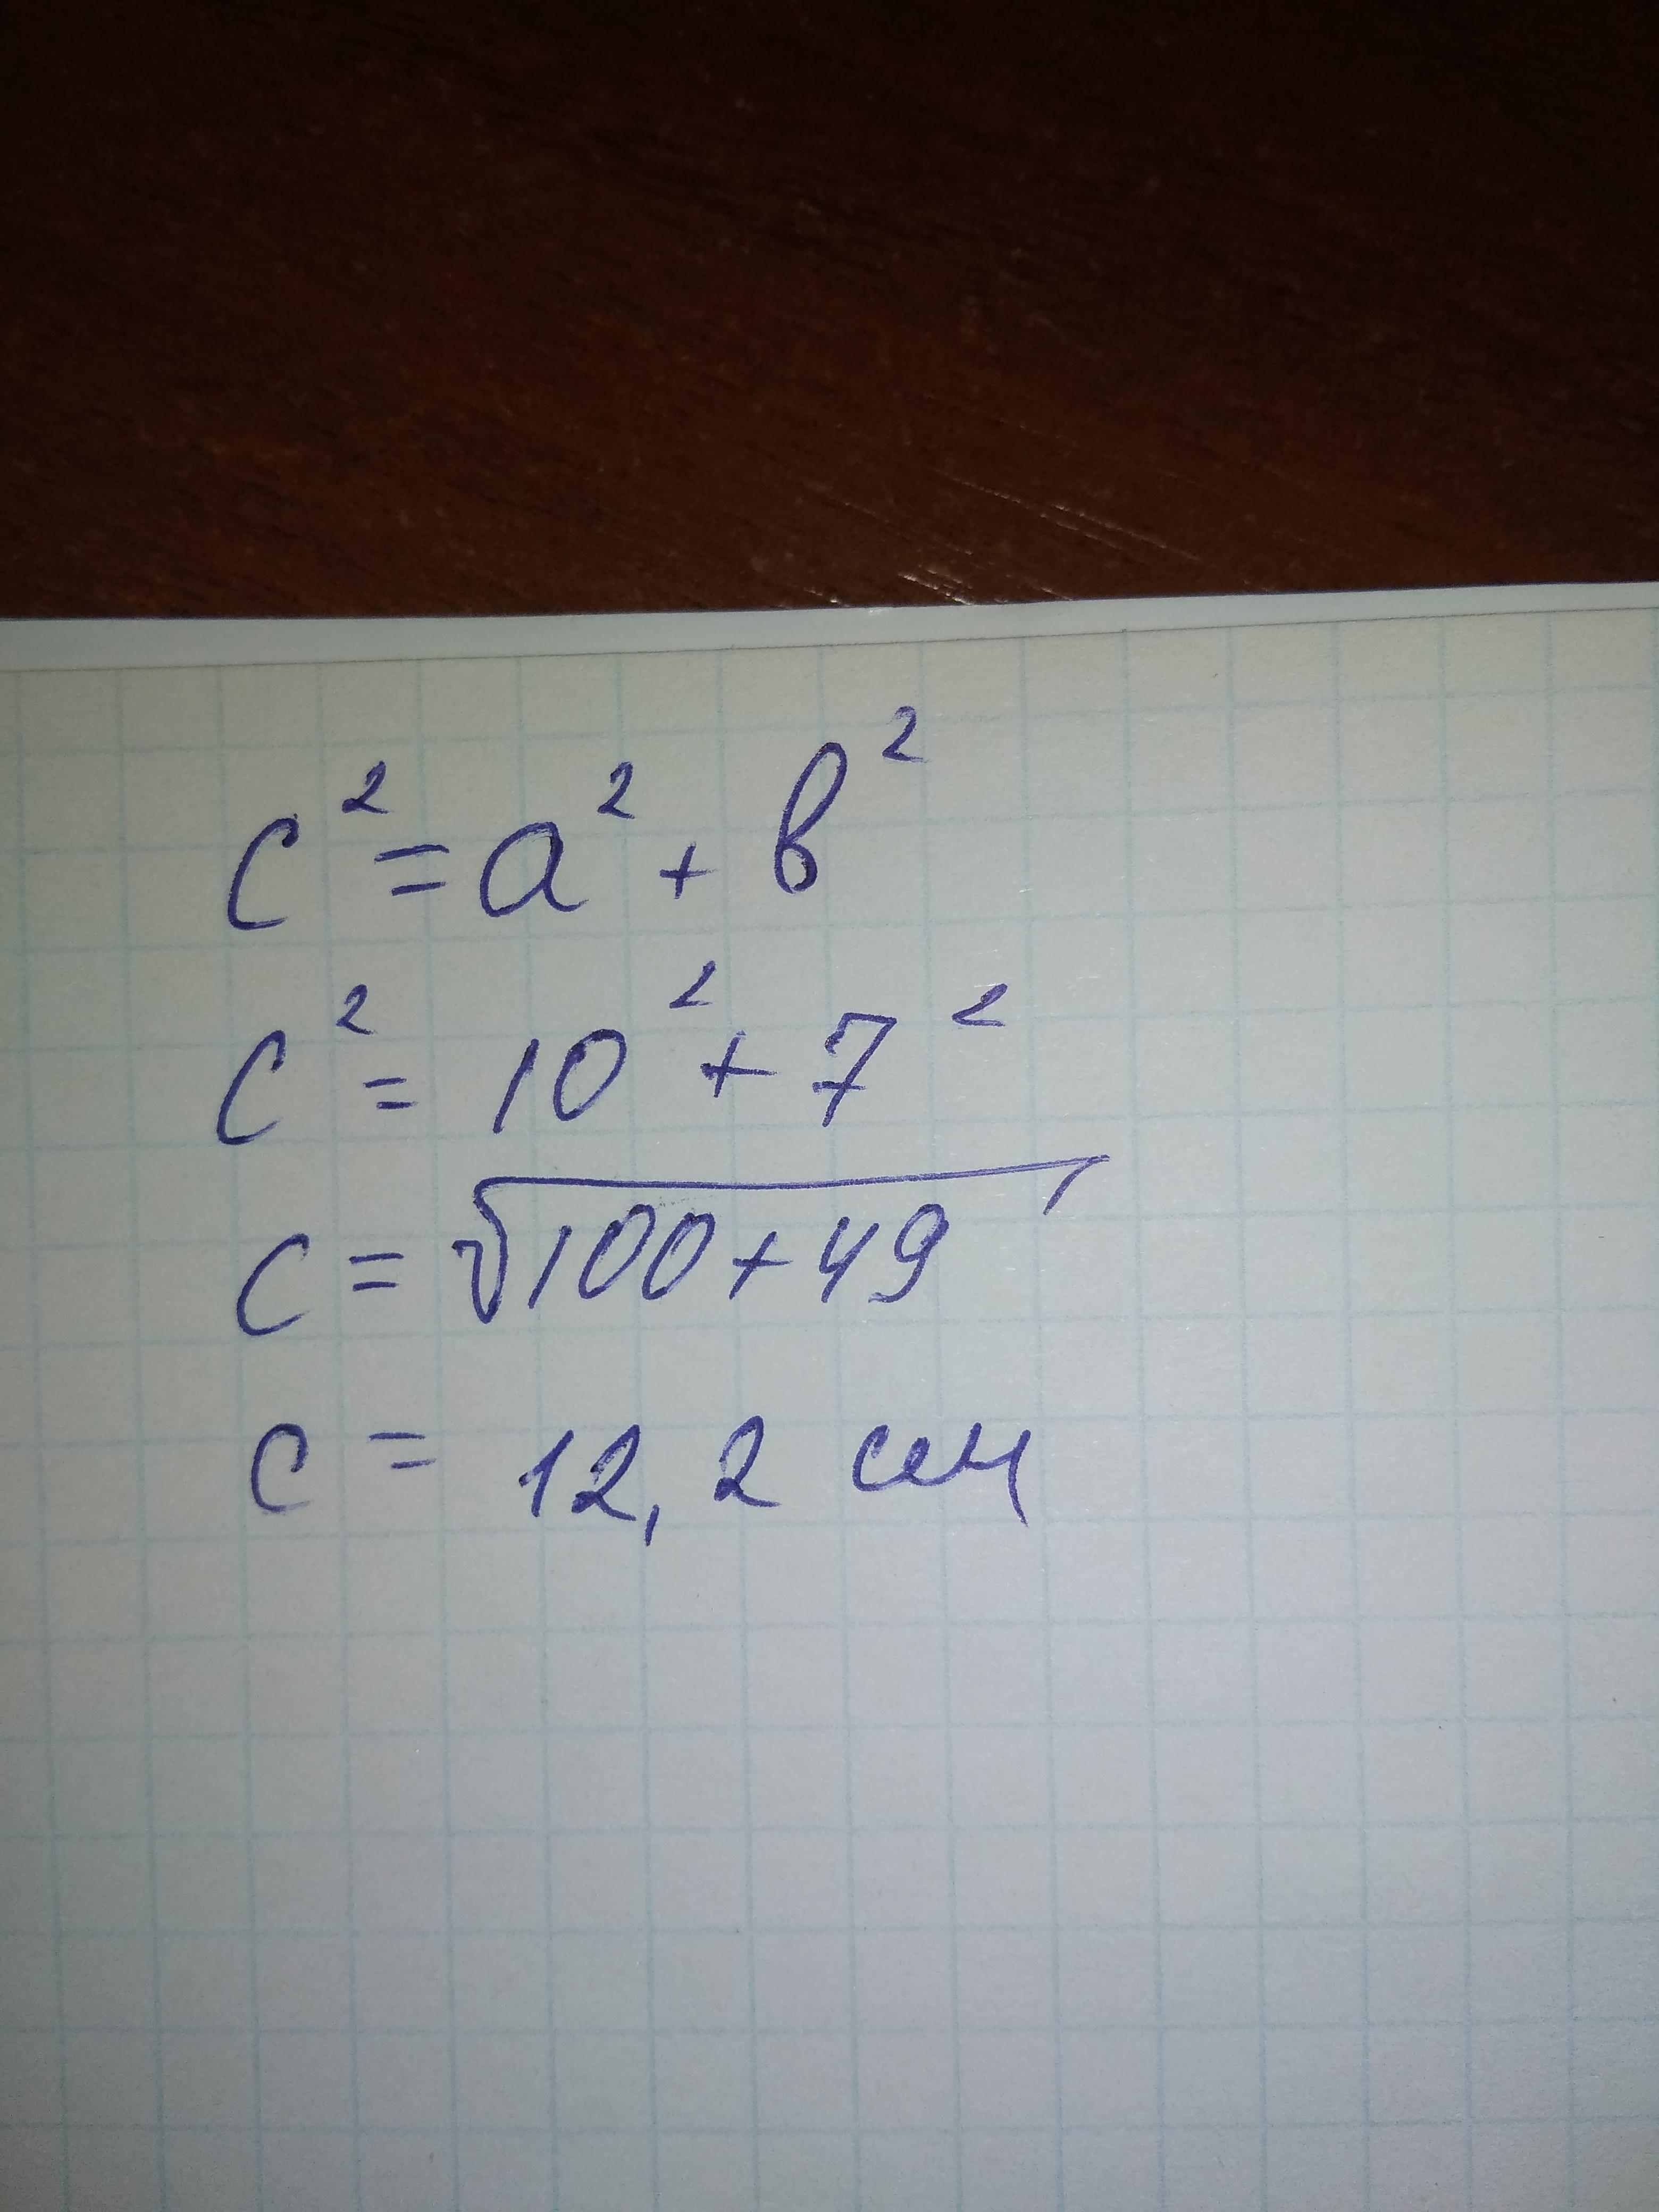 c² = a² + b²
c² = 10² + 7²
c = √100+49
c = 12,2 см